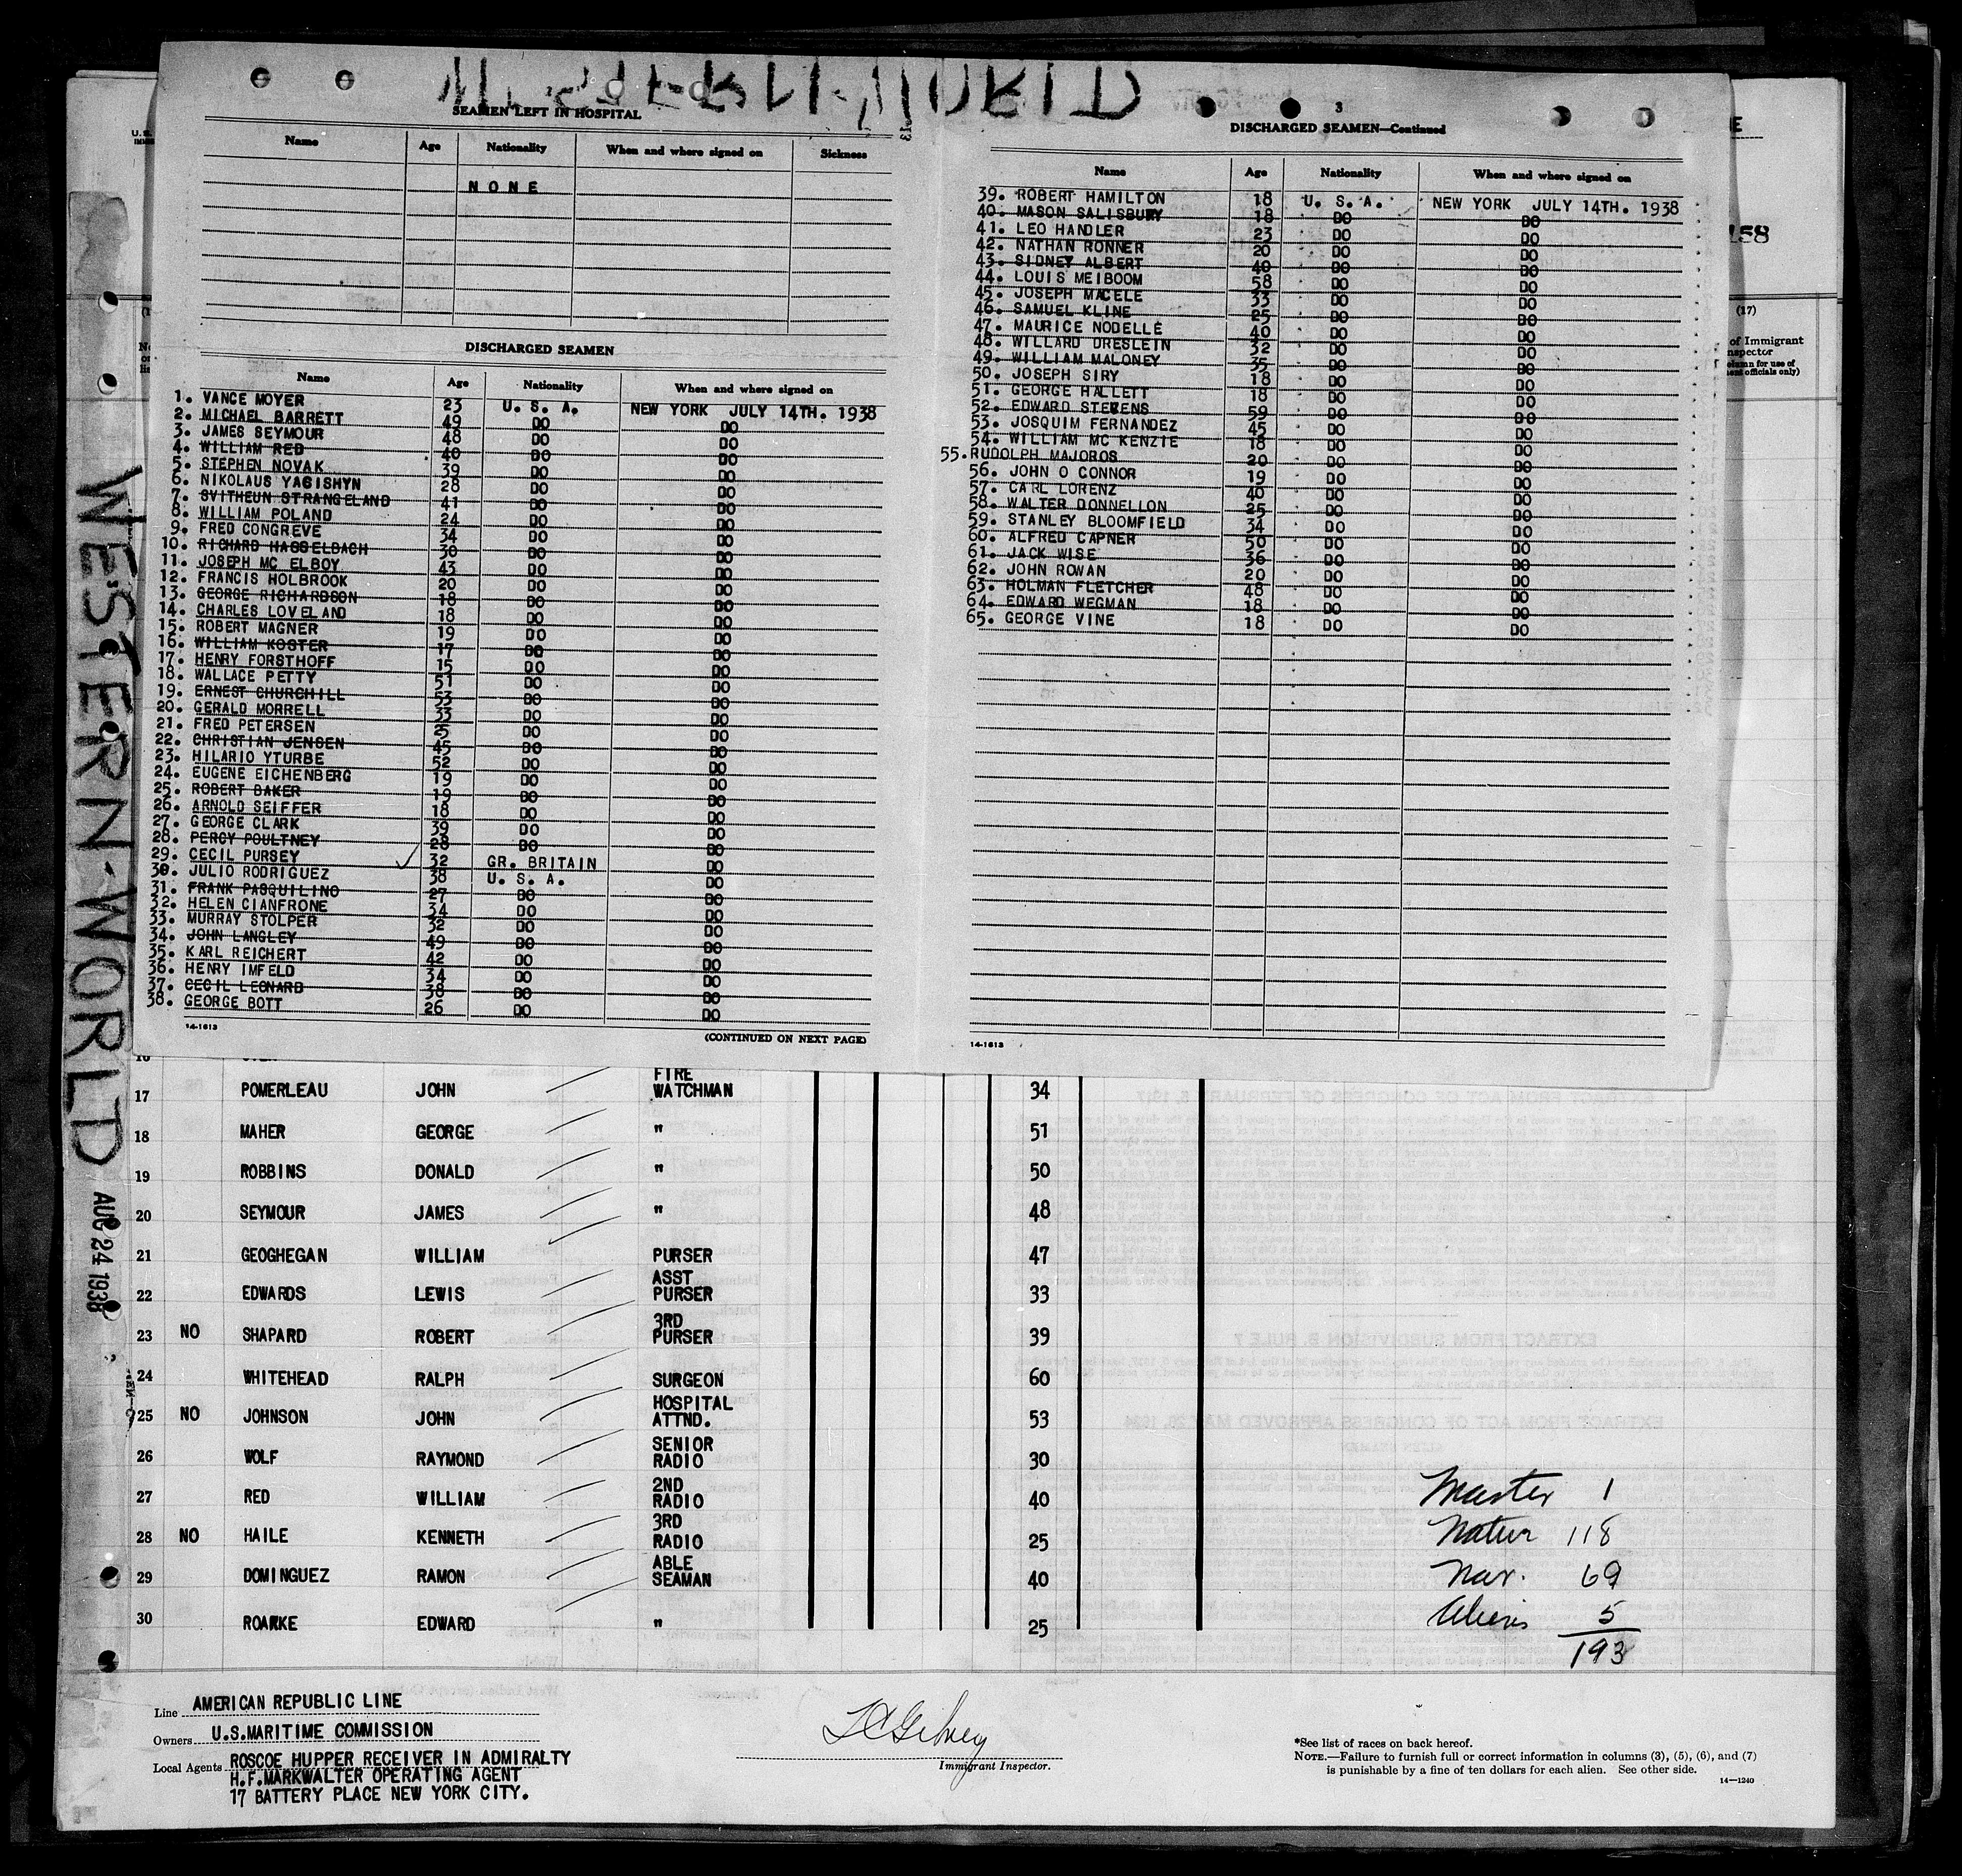 WESTERN-WORLD
SEAMEN LEFT IN HOSPITAL
Name Age Nationality When and where signed on Sickness
NONE
DISCHARGED SEAMEN
Name Age Nationality When and where signed on
1. VANCE MOYER 23 U. S. A. NEW YORK JULY 14TH. 1938
2. MICHAEL BARRETT 49 DO DO
3. JAMES SEYMOUR 48 DO DO
4. WILLIAM RED 40 DO DO
5. STEPHEN NOVAK 39 DO DO
6. NIKOLAUS YAGISHYN 28 DO DO
7. SVITHEUN STRANGELAND 41 DO DO
8. WILLIAM POLAND 24 DO DO
9. FRED CONGREVE 34 DO DO
10. RICHARD HASSELBACH 30 DO DO
11. JOSEPH MC ELBOY 43 DO DO
12. FRANCIS HOLBROOK 20 DO DO
13. GEORGE RICHARDSON 18 DO DO
14. CHARLES LOVELAND 18 DO DO
15. ROBERT MAGNER 19 DO DO
16. WILLIAM KOSTER 17 DO DO
17. HENRY FORSTHOFF 15 DO DO
18. WALLACE PETTY 51 DO DO
19. ERNEST CHURCHILL 53 DO DO
20. GERALD MORRELL 33 DO DO
21. FRED PETERSEN 25 DO DO
22. CHRISTIAN JENSEN 45 DO DO
23. HILARIO YTURBE 52 DO DO
24. EUGENE EICHENBERG 19 DO DO
25. ROBERT BAKER 19 DO DO
26. ARNOLD SEIFFER 18 DO DO
27. GEORGE CLARK 39 DO DO
28. PERCY POULTNEY 28 DO DO
29. CECIL PURSEY 32 GR. BRITAIN DO
30. JULIO RODRIGUEZ 38 U. S. A. DO
31. FRANK PASQUILINO 27 DO DO
32. HELEN CIANFRONE 34 DO DO
33. MURRAY STOLPER 32 DO DO
34. JOHN LANGLEY 49 DO DO
35. KARL REICHERT 42 DO DO
36. HENRY IMFELD 34 DO DO
37. CECIL LEONARD 38 DO DO
38. GEORGE BOTT 26 DO DO
14-1613
(CONTINUED ON NEXT PAGE)
3
DISCHARGED SEAMEN—Continued
Name Age Nationality When and where signed on
39. ROBERT HAMILTON 18 U. S. A. NEW YORK JULY 14TH. 1938
40. MASON SALISBURY 18 DO DO
41. LEO HANDLER 23 DO DO
42. NATHAN RONNER 20 DO DO
43. SIDNEY ALBERT 40 DO DO
44. LOUIS MEIBOOM 58 DO DO
45. JOSEPH MACELE 33 DO DO
46. SAMUEL KLINE 25 DO DO
47. MAURICE NODELLE 40 DO DO
48. WILLARD DRESLEIN 32 DO DO
49. WILLIAM MALONEY 35 DO DO
50. JOSEPH SIRY 18 DO DO
51. GEORGE HALLETT 18 DO DO
52. EDWARD STEVENS 59 DO DO
53. JOSQUIM FERNANDEZ 45 DO DO
54. WILLIAM MC KENZIE 18 DO DO
55. RUDOLPH MAJOROS 20 DO DO
56. JOHN O CONNOR 19 DO DO
57. CARL LORENZ 40 DO DO
58. WALTER DONNELLON 25 DO DO
59. STANLEY BLOOMFIELD 34 DO DO
60. ALFRED CAPNER 50 DO DO
61. JACK WISE 36 DO DO
62. JOHN ROWAN 20 DO DO
63. HOLMAN FLETCHER 48 DO DO
64. EDWARD WEGMAN 18 DO DO
65. GEORGE VINE 18 DO DO
14-1613
158
(17)
of Immigrant
WESTERN-WORLD
AUG 24 1938
17 POMERLEAU JOHN FIRE WATCHMAN 34
18 MAHER GEORGE " 51
19 ROBBINS DONALD " 50
20 SEYMOUR JAMES " 48
21 GEOGHEGAN WILLIAM PURSER 47
22 EDWARDS LEWIS ASST PURSER 33
23 NO SHAPARD ROBERT 3RD PURSER 39
24 WHITEHEAD RALPH SURGEON 60
25 NO JOHNSON JOHN HOSPITAL ATTND. 53
26 WOLF RAYMOND SENIOR RADIO 30
27 RED WILLIAM 2ND RADIO 40
28 NO HAILE KENNETH 3RD RADIO 25
29 DOMINGUEZ RAMON ABLE SEAMAN 40
30 ROARKE EDWARD " 25
Master 1
Natur 118
Nav. 69
Aliens 5
193
Line AMERICAN REPUBLIC LINE
Owners U.S.MARITIME COMMISSION
Local Agents ROSCOE HUPPER RECEIVER IN ADMIRALTY
H.F.MARKWALTER OPERATING AGENT
17 BATTERY PLACE NEW YORK CITY.
Immigrant Inspector.
*See list of races on back hereof.
NOTE.—Failure to furnish full or correct information in columns (3), (5), (6), and (7)
is punishable by a fine of ten dollars for each alien. See other side.
14—1240